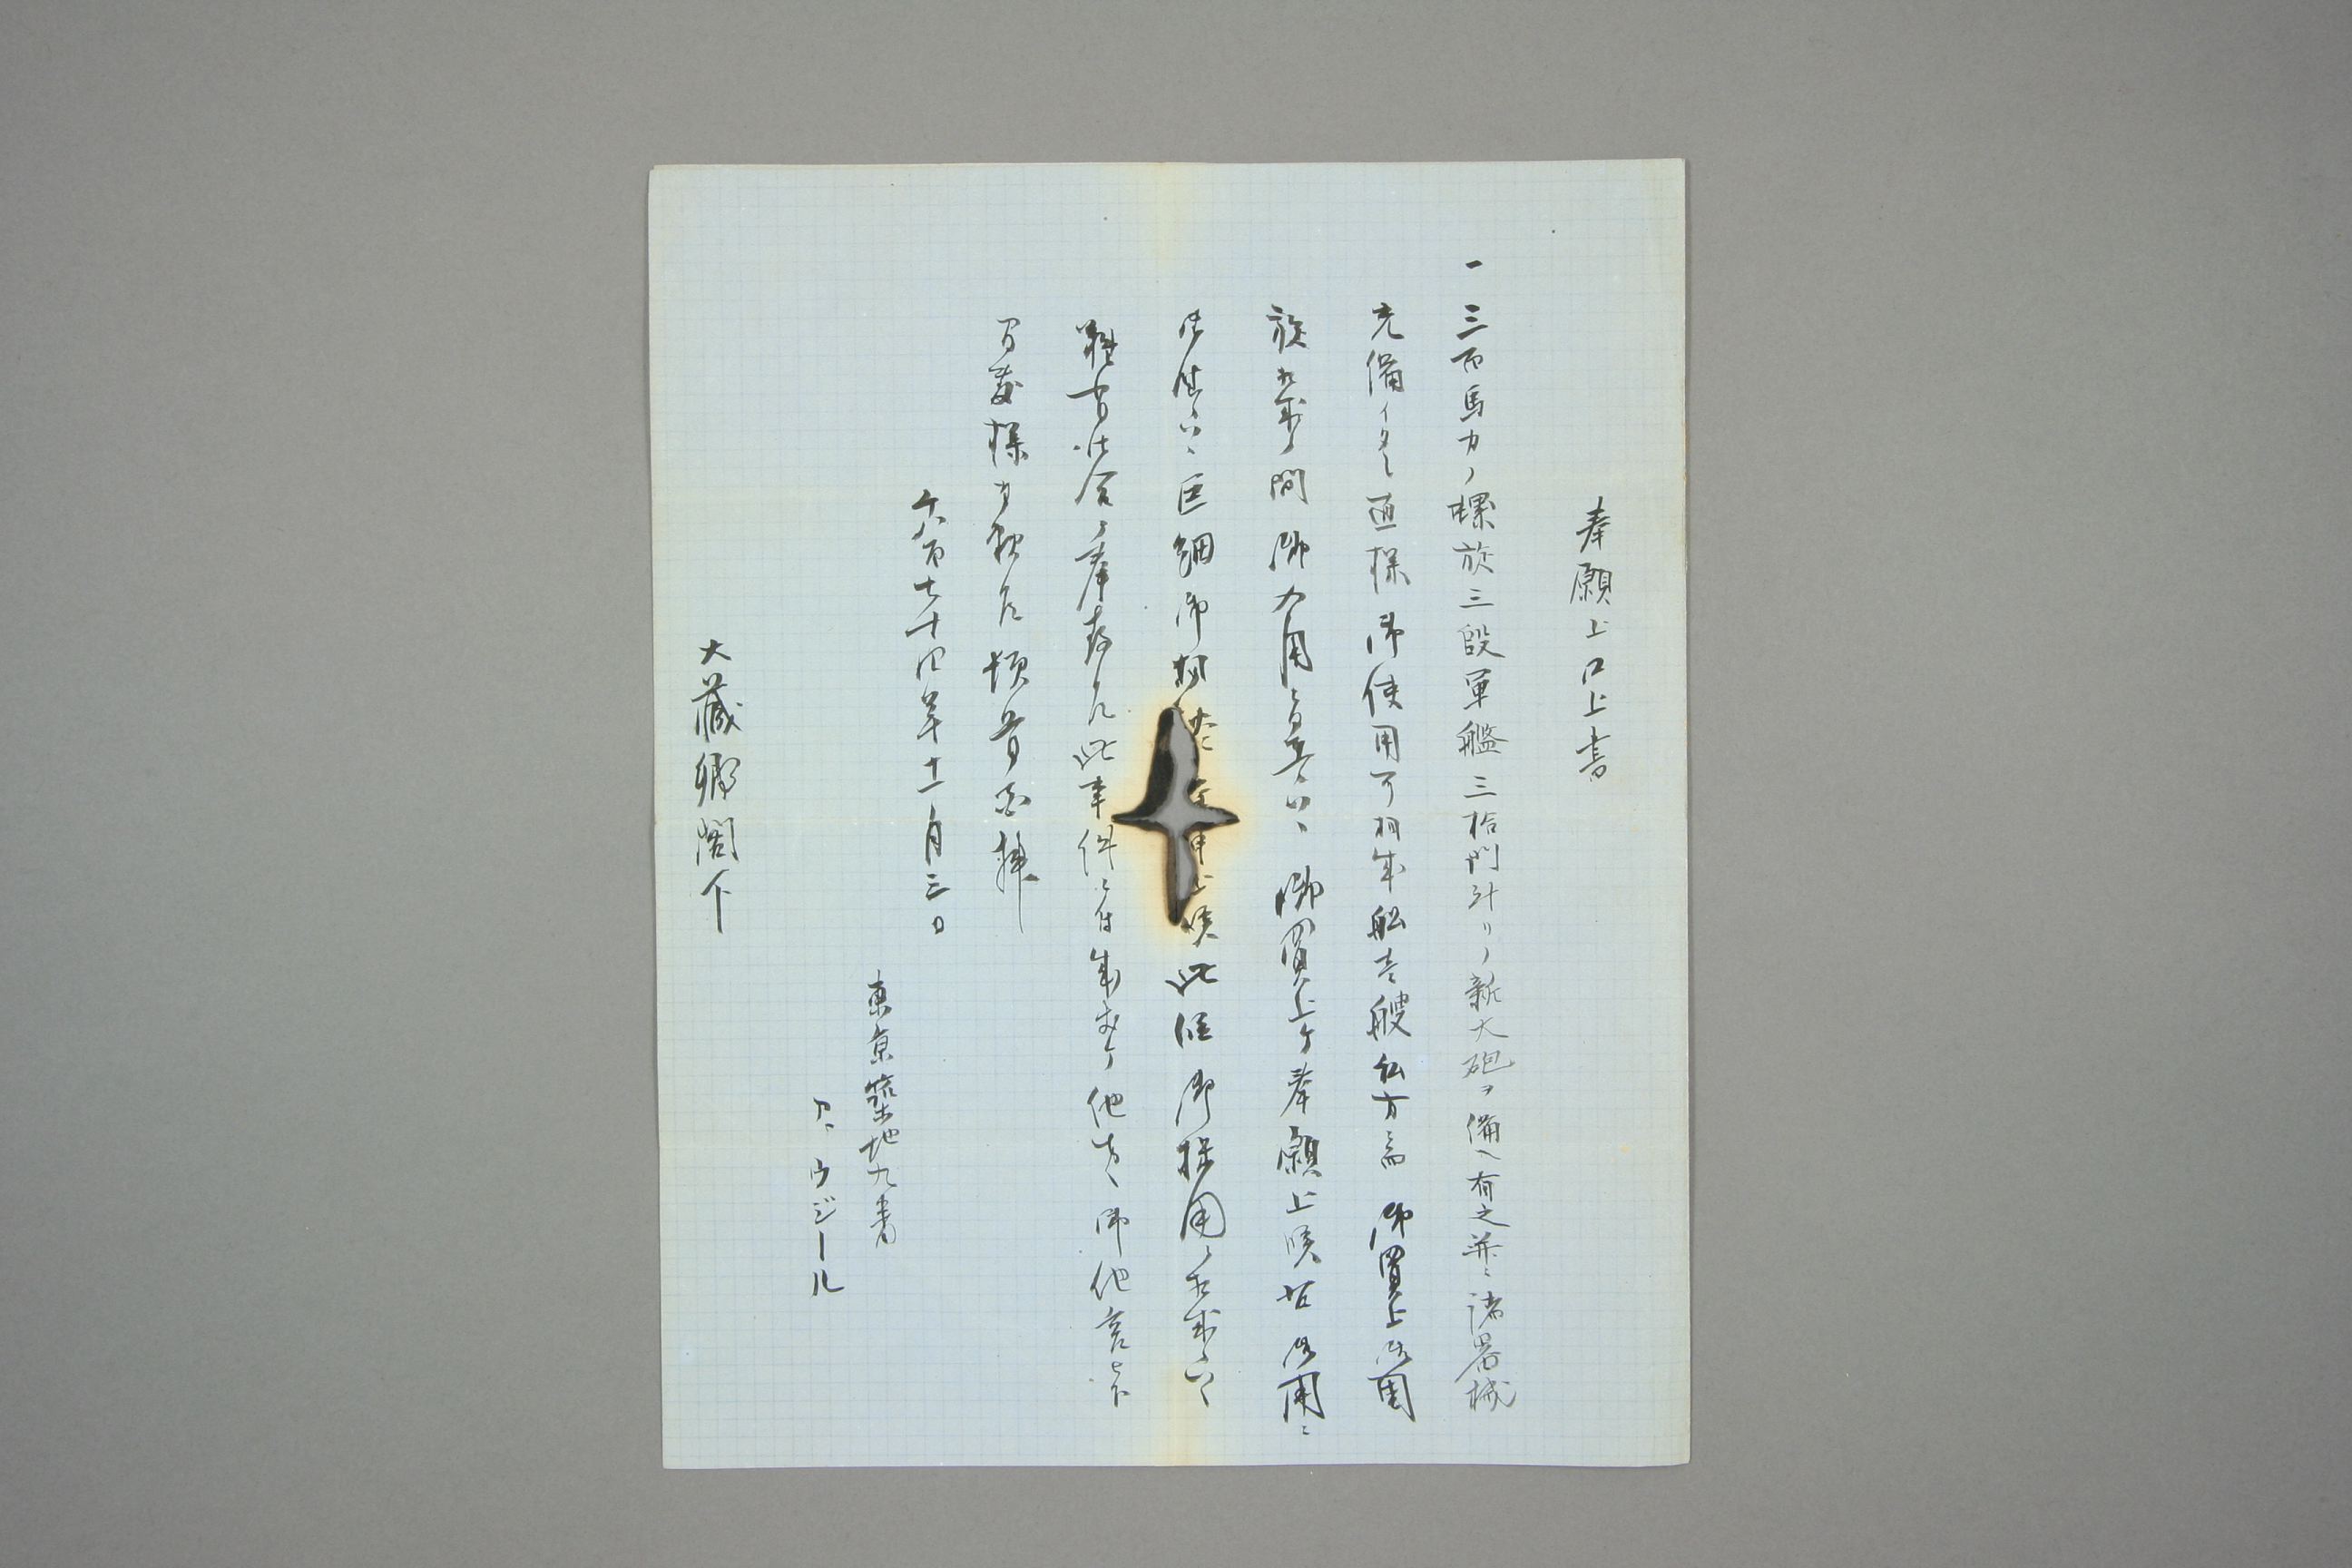 奉願上口上書
一三百馬力ノ螺旋三段軍艦三拾門計リノ新大砲ヲ備ヘ有之并ニ諸器械
充備イタシ直様御使用可相成船壱艘私方ニ而御買上御周
旋相成候間御入用ニ有之候ハヽ御買上ケ奉願上候若御用ニ
候ハヽ巨細御相 申上候此段御採用ニ相成候ハヽ
難有仕合ニ奉存候此事件ニ付成否ケ他者ヘ御他言
間敷様御頼候頓首百拝
千八百七十四年十一月三日
東京築地九番
ア、ウジール
大蔵卿閣下